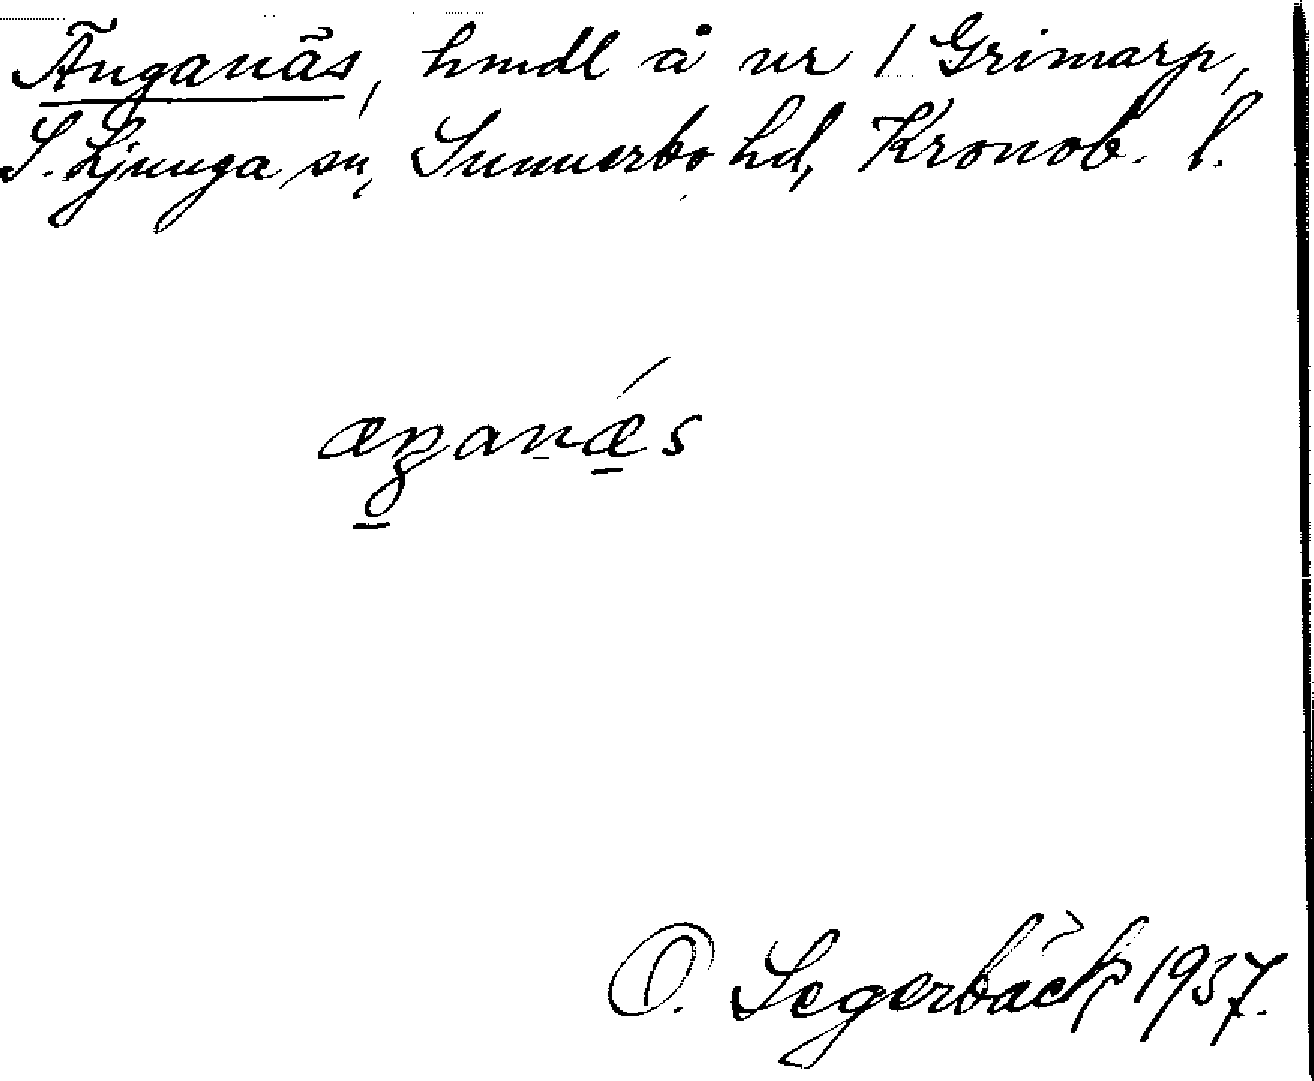 Änganäs, hmdl å nr 1 Grimarp,
S. Ljunga sn, Sunnerbo hd, Kronob. l.
æŋanǽs
O. Segerbäck 1937.